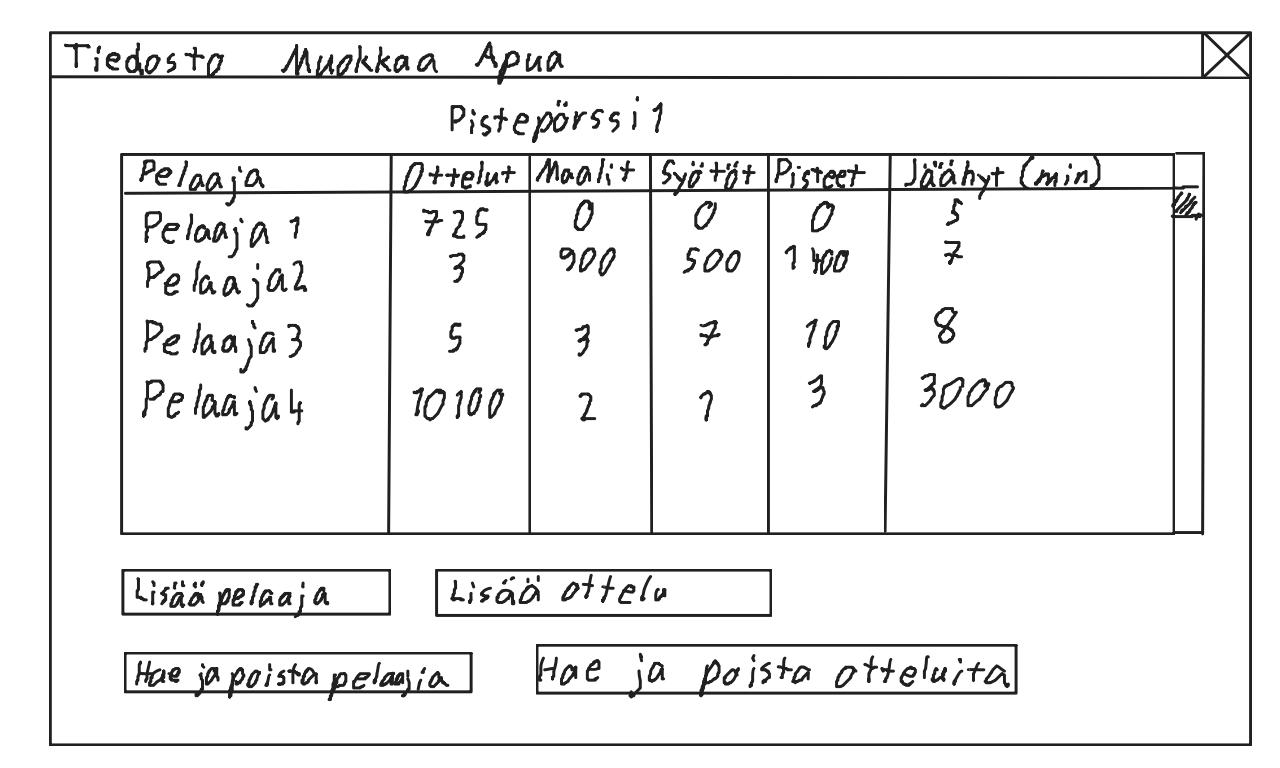 Tiedosto Muokkaa Apua
Pistepörssi 1
Pelaaja Ottelut Maalit Syötöt Pisteet Jäähyt (min)
Pelaaja 1 725 0 0 0 5
Pelaaja2 3 900 500 1400 7
Pelaaja3 5 3 7 10 8
Pelaaja4 10100 2 1 3 3000
Lisää pelaaja Lisää ottelu
Hae ja poista pelaajia Hae ja poista otteluita